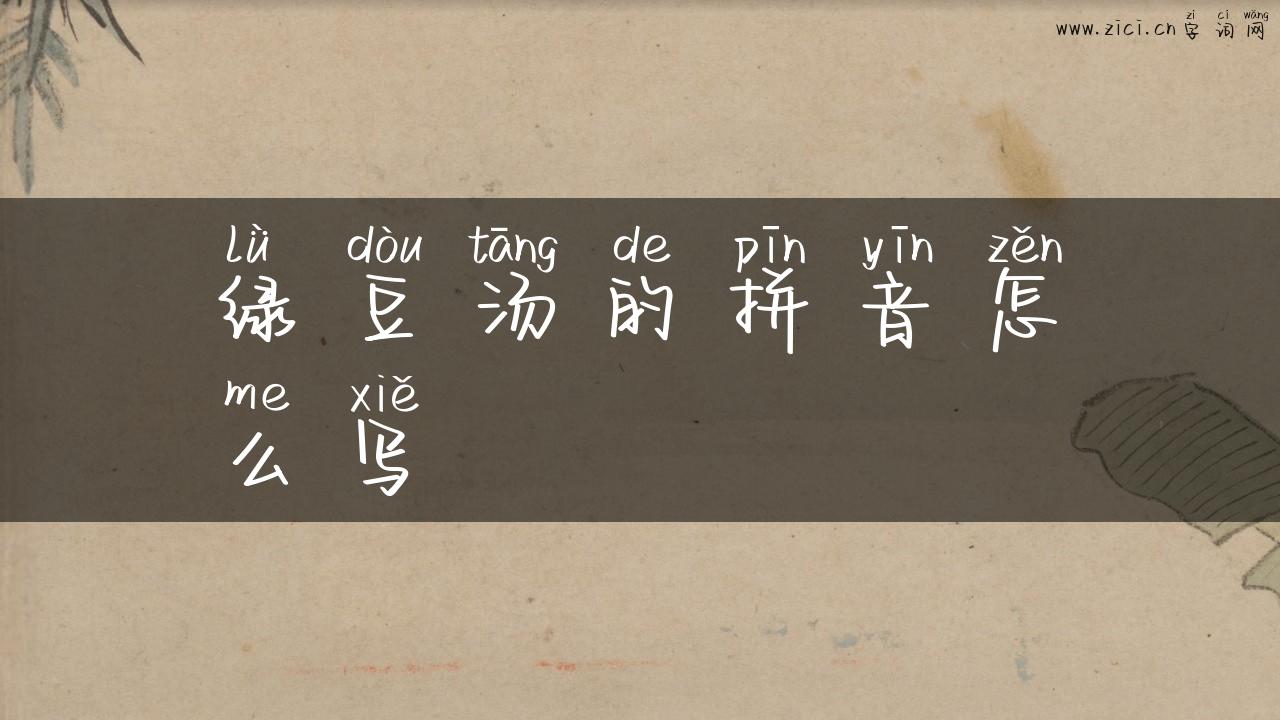 zì cí wǎng
www.zici.cn 字词网
lǜ dòu tāng de pīn yīn zěn
绿豆汤的拼音怎
me xiě
么写